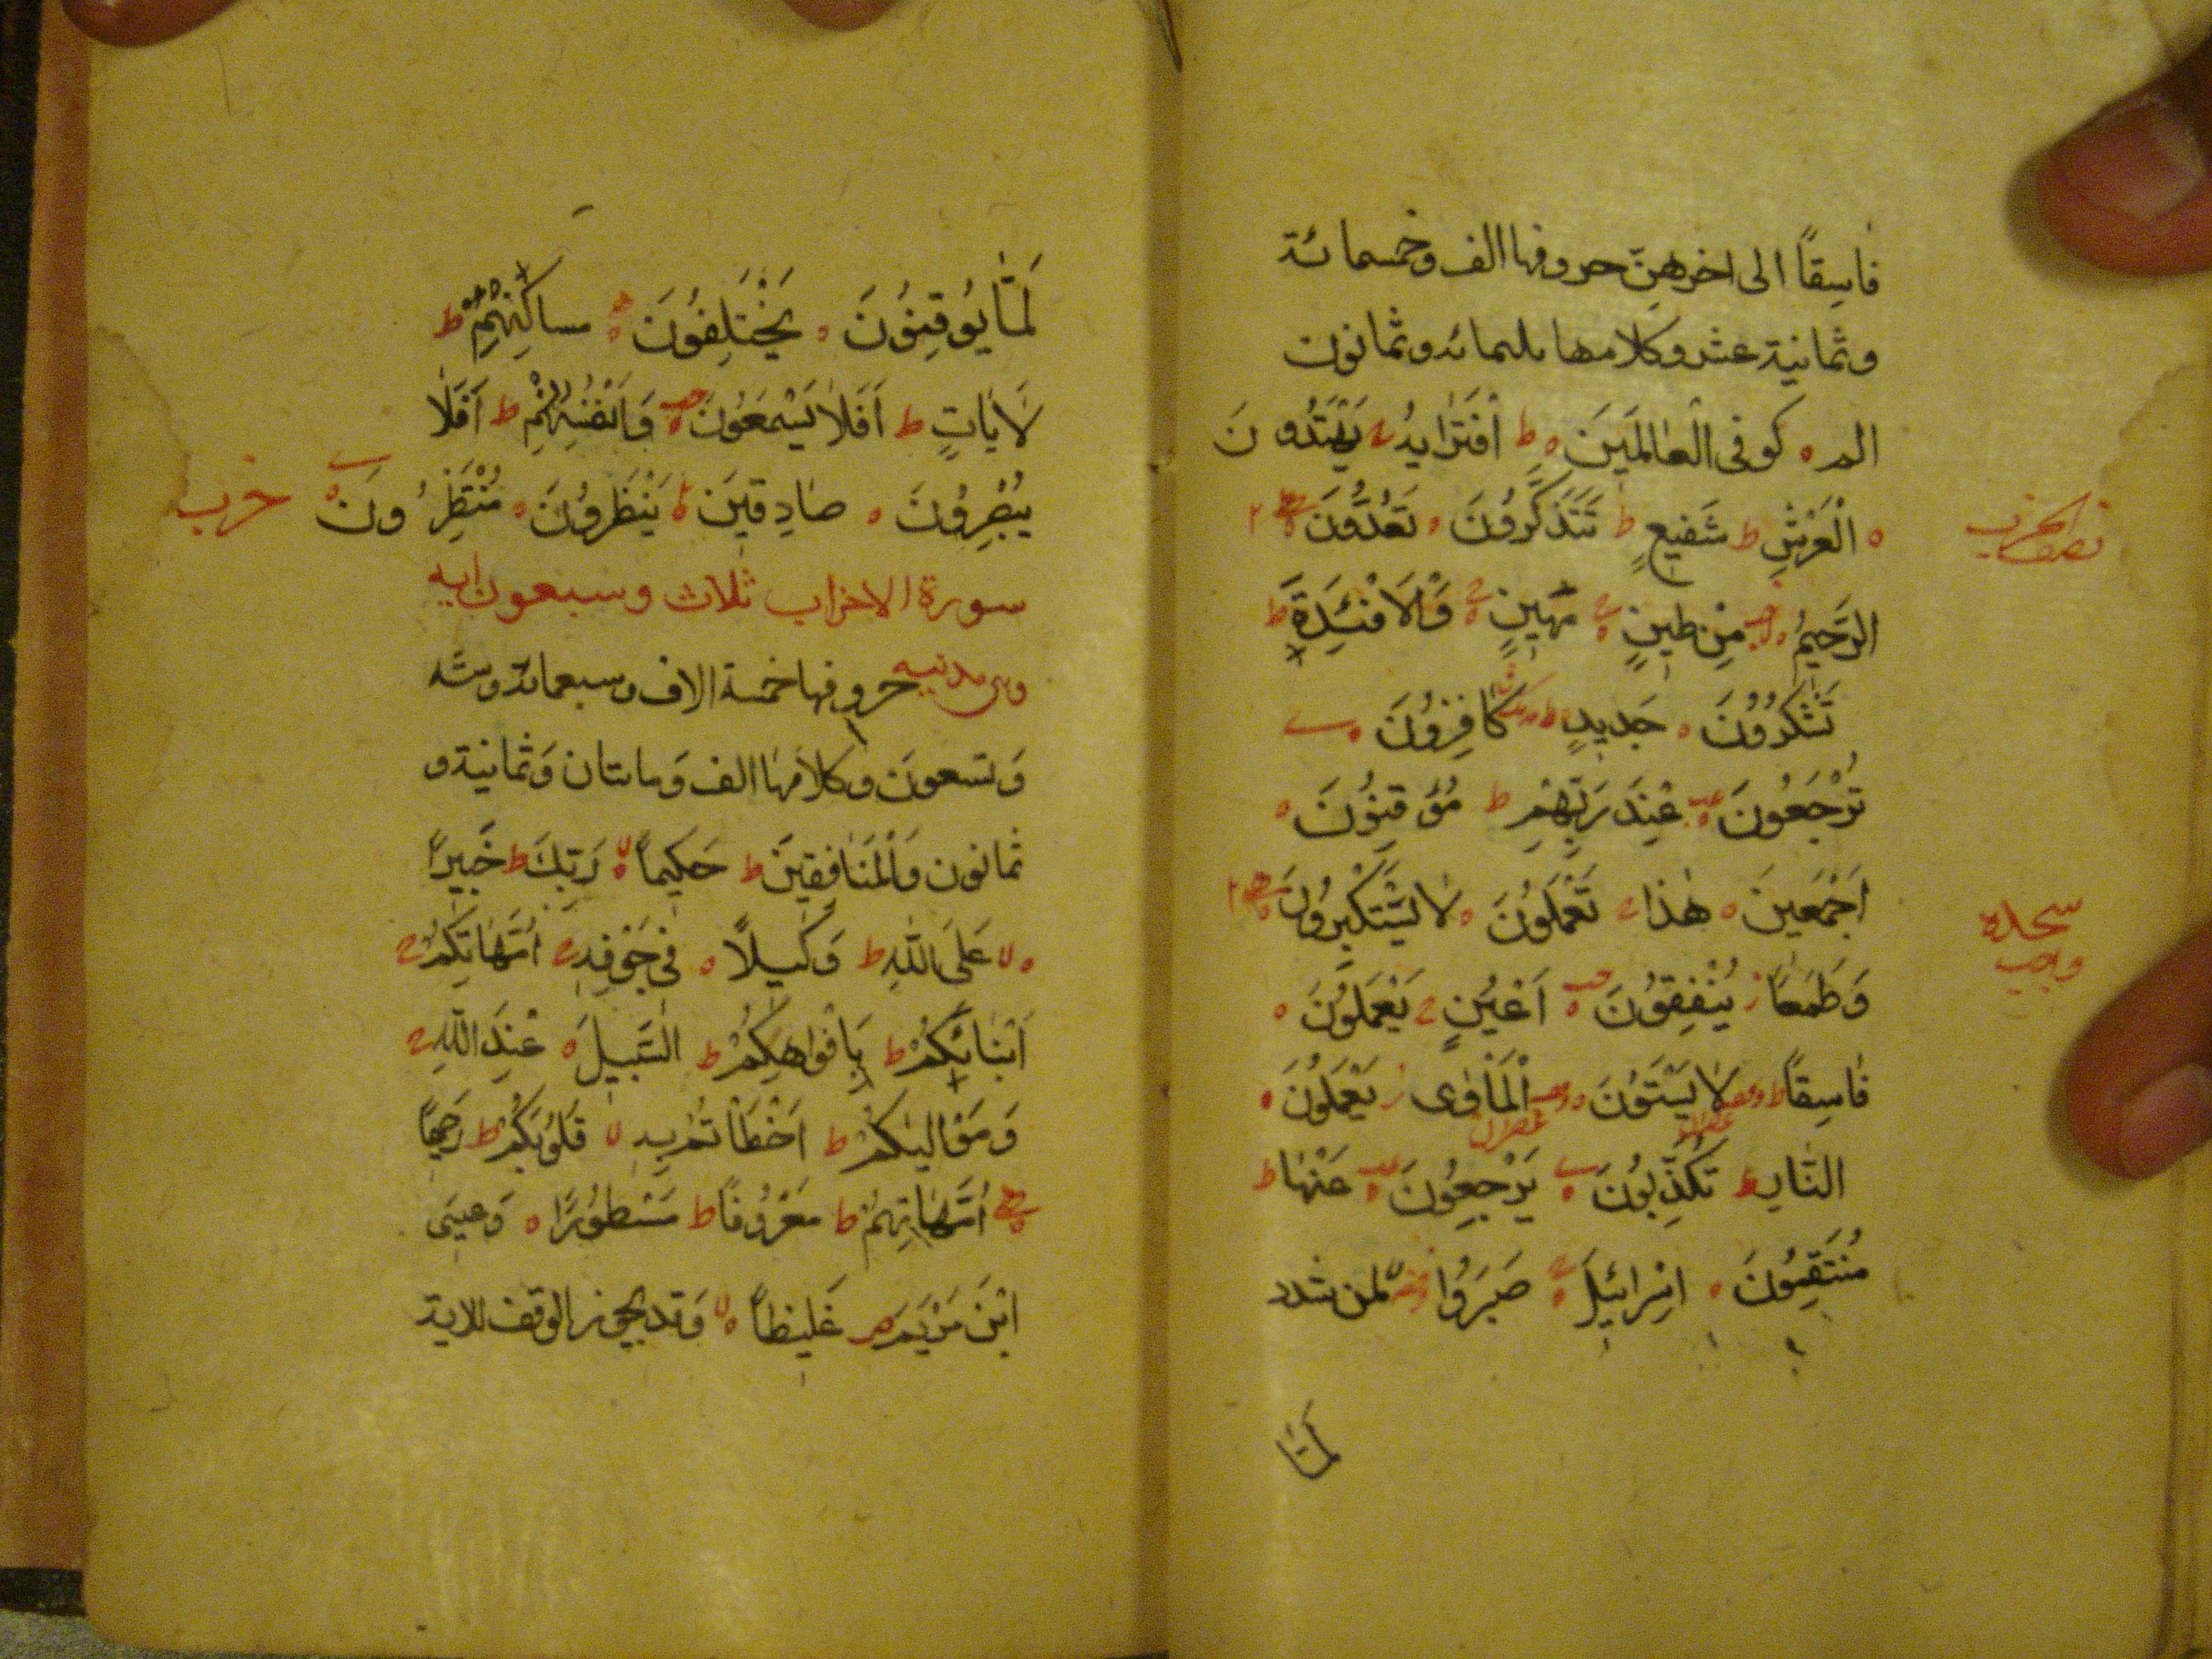 فاسِقًا الى اخرهنّ حروفها الف وخمسمائة
وثمانية عشر وكلامها ثلثمائه وثمانون
الم ه كوفى الْعالَمينَ ه ط اَفْتَرايهُ ج يَهْتَدُونَ
ه الْعَرْشِ ط شَفيعٍ ط تَتَذَكَّرُونَ ه تَعُدُّونَ
نصف الحزب
الرَّحيمُ ه مِنْ طينٍ ج مَهينٍ ج وَالْاَفْئِدَةَ ط
تَشْكُرُونَ ه جَديدٍ ط كافِرُونَ ه
تُرْجَعُونَ ه عِنْدَ رَبِّهِمْ ط مُوقِنُونَ ه
اَجْمَعينَ ه هٰذا ج تَعْمَلُونَ ه لا يَسْتَكْبِرُونَ
سجده
واجب
وَطَمَعًا ز يُنْفِقُونَ ه اَعْيُنٍ ج يَعْمَلُونَ ه
فاسِقًا ط لا يَسْتَوُنَ ه الْمَأْوٰى ز يَعْمَلُونَ ه
النّار ط تُكَذِّبُونَ ه يَرْجِعُونَ ه عَنْها ط
مُنْتَقِمُونَ ه اِسْرائيلَ ج صَبَرُوا لمن شدد
لَمّا
لَمّا يُوقِنُونَ ه يَخْتَلِفُونَ ه مساكِنِهِمْ ط
لَاٰياتٍ ط اَفَلا يَسْمَعُونَ ه وَاَنْفُسُهُمْ ط اَفَلا
يُبْصِرُونَ ه صادِقينَ ه يُنْظَرُونَ ه مُنْتَظِرُونَ ه حزب
سورة الاحزاب ثلاث وسبعون ايه
وهى مدنيه حروفها خمسة الاف وسبعمائة وستة
وَتسعونَ وكلامها الف وَمائتان وَثمانية و
ثمانون وَالْمُنافِقينَ ط حَكيمًا ه لا رَبِّكَ ط خَبيرًا
ه لا عَلَى اللّٰهِ ط وَكيلًا ه فى جَوْفِهِ ج اُمَّهاتِكُمْ ج
اَبْناءَكُمْ ط بِاَفْواهِكُمْ ط السَّبيلَ ه عِنْدَ اللّٰهِ ج
وَمَواليكُمْ ط اَخْطَأْتُمْ بِهِ لا قُلُوبُكُمْ ط رَحيمًا
ه اُمَّهاتُهُمْ ط مَعْرُوفًا ط مَسْطُورًا ه وَعيسَى
ابْنَ مَرْيَمَ ص غَليظًا ه لا وَقد يجوز الوقف للاية